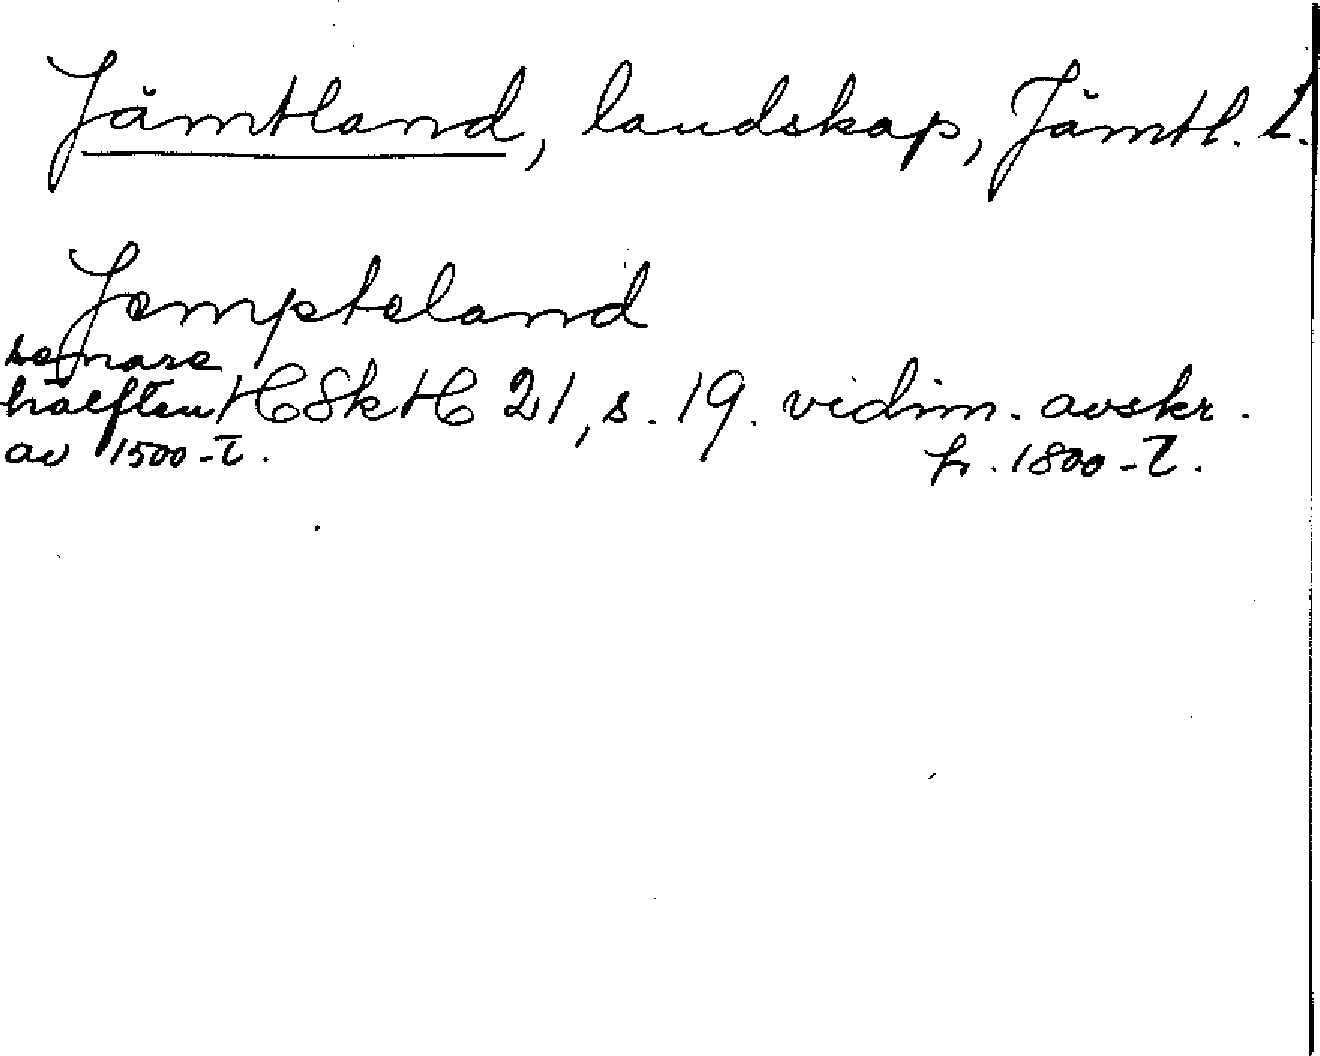 Jämtland, landskap, Jämtl. l.
Jempteland
senare
hälften HSkH 21, s. 19. vidim. avskr.
av 1500-t. fr. 1800-t.